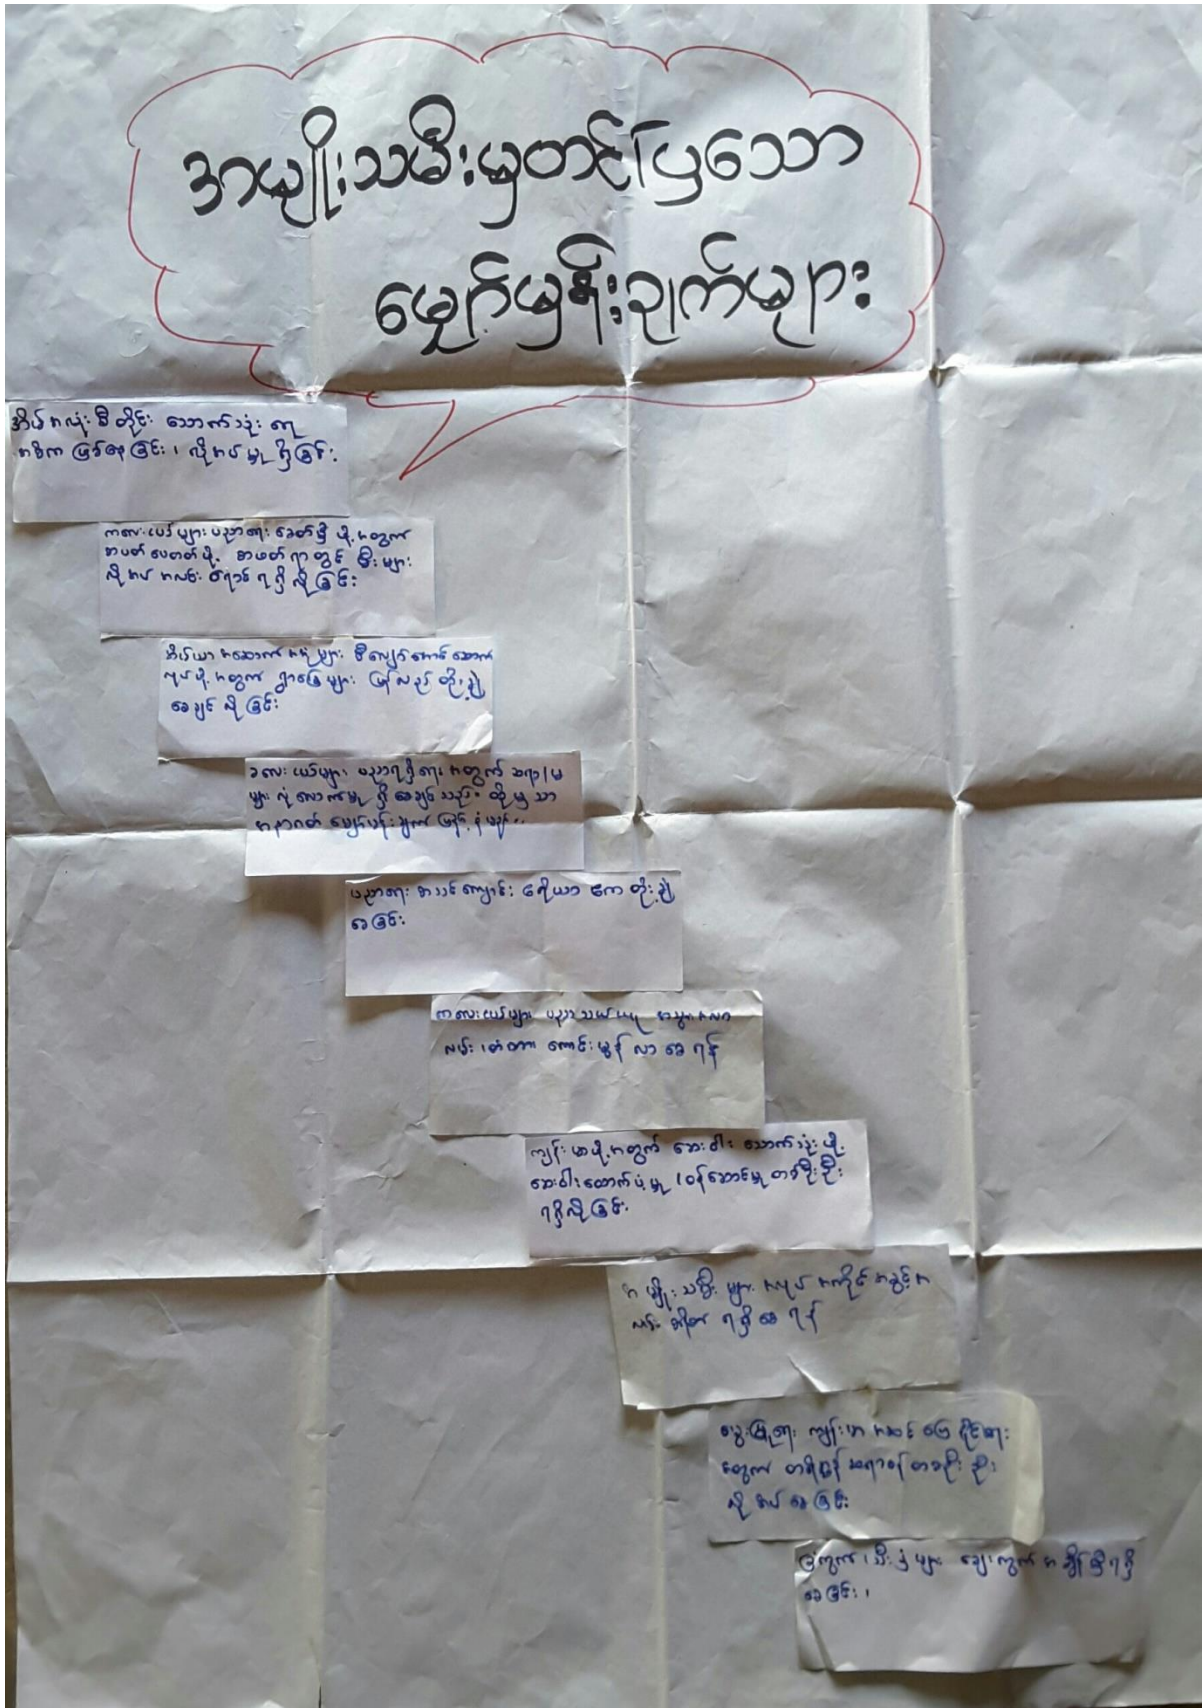 အမျိုးသမီးမှတင်ပြသော
မျှော်မှန်းချက်များ
အိမ်အလုံးစီတိုင်း သောက်သုံးရေ
အဓိက ဖြစ်နေခြင်း၊ လိုအပ်မှု ရှိခြင်း
ကလေးငယ်များပညာရေး ခေတ်မှီဖို့အတွက်
စာဖတ်စေတတ်ဖို့ စာဖတ်ရာတွင် မီးများ
လိုအပ် အလင်းရောင် ရရှိလိုခြင်း
အိမ်ယာအဆောက်အအုံများ စီလျော်ကောင်းဆောက်
လုပ်ဖို့အတွက် ရွာမြေများ ပြန်လည် တိုးချဲ့
စေချင်လိုခြင်း
ကလေးငယ်များ ပညာရရှိရေးအတွက် ဆရာ/မ
များ လုံလောက်မှု ရှိစေချင်သည်။ ထိုမှသာ
အနာဂတ် မျှော်မှန်းချက် ပြန့်နှံ့မည်။
ပညာရေး စာသင်ကျောင်း ဧရိယာ တိုးချဲ့
စေခြင်း
ကလေးငယ်များ ပညာသယ်ယူ အသွားအလာ
လမ်း၊တံတား ကောင်းမွန်လာစေရန်
ကျန်းမာဖို့အတွက် ဆေးဝါး သောက်သုံးဖို့
ဆေးဝါးထောက်ပံ့မှု ၊ဝန်ဆောင်မှု တစ်ဦးဦး
ရရှိလိုခြင်း
အမျိုးသမီးများ အလုပ်အကိုင်အခွင့်အ
လမ်း ရရှိစေရန်
မွေးမြူရေး ကျန်းမာ
အတွက် တိရိစ္ဆာန်ဆရာဝန်တစ်ဦးဦး
လိုအပ်စေခြင်း
ခြံကွက်၊သီးနှံများ ဈေးကွက်အချိန်မှီရရှိ
စေခြင်း၊